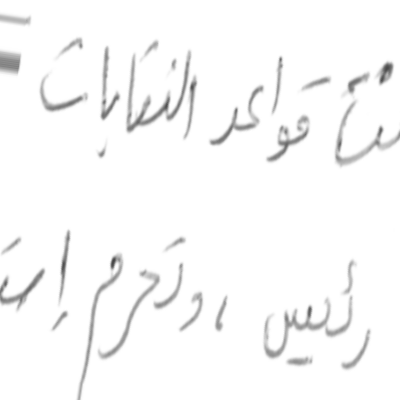 قواعد النقابات
رئيس ، وتحرم